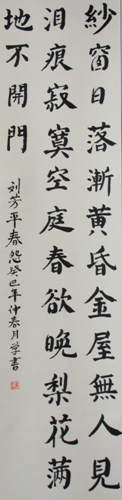 紗窗日落漸黃昏金屋無人見
淚痕寂寞空庭春欲晚梨花满
地不開門
刘芳平春怨癸巳年仲春月学書